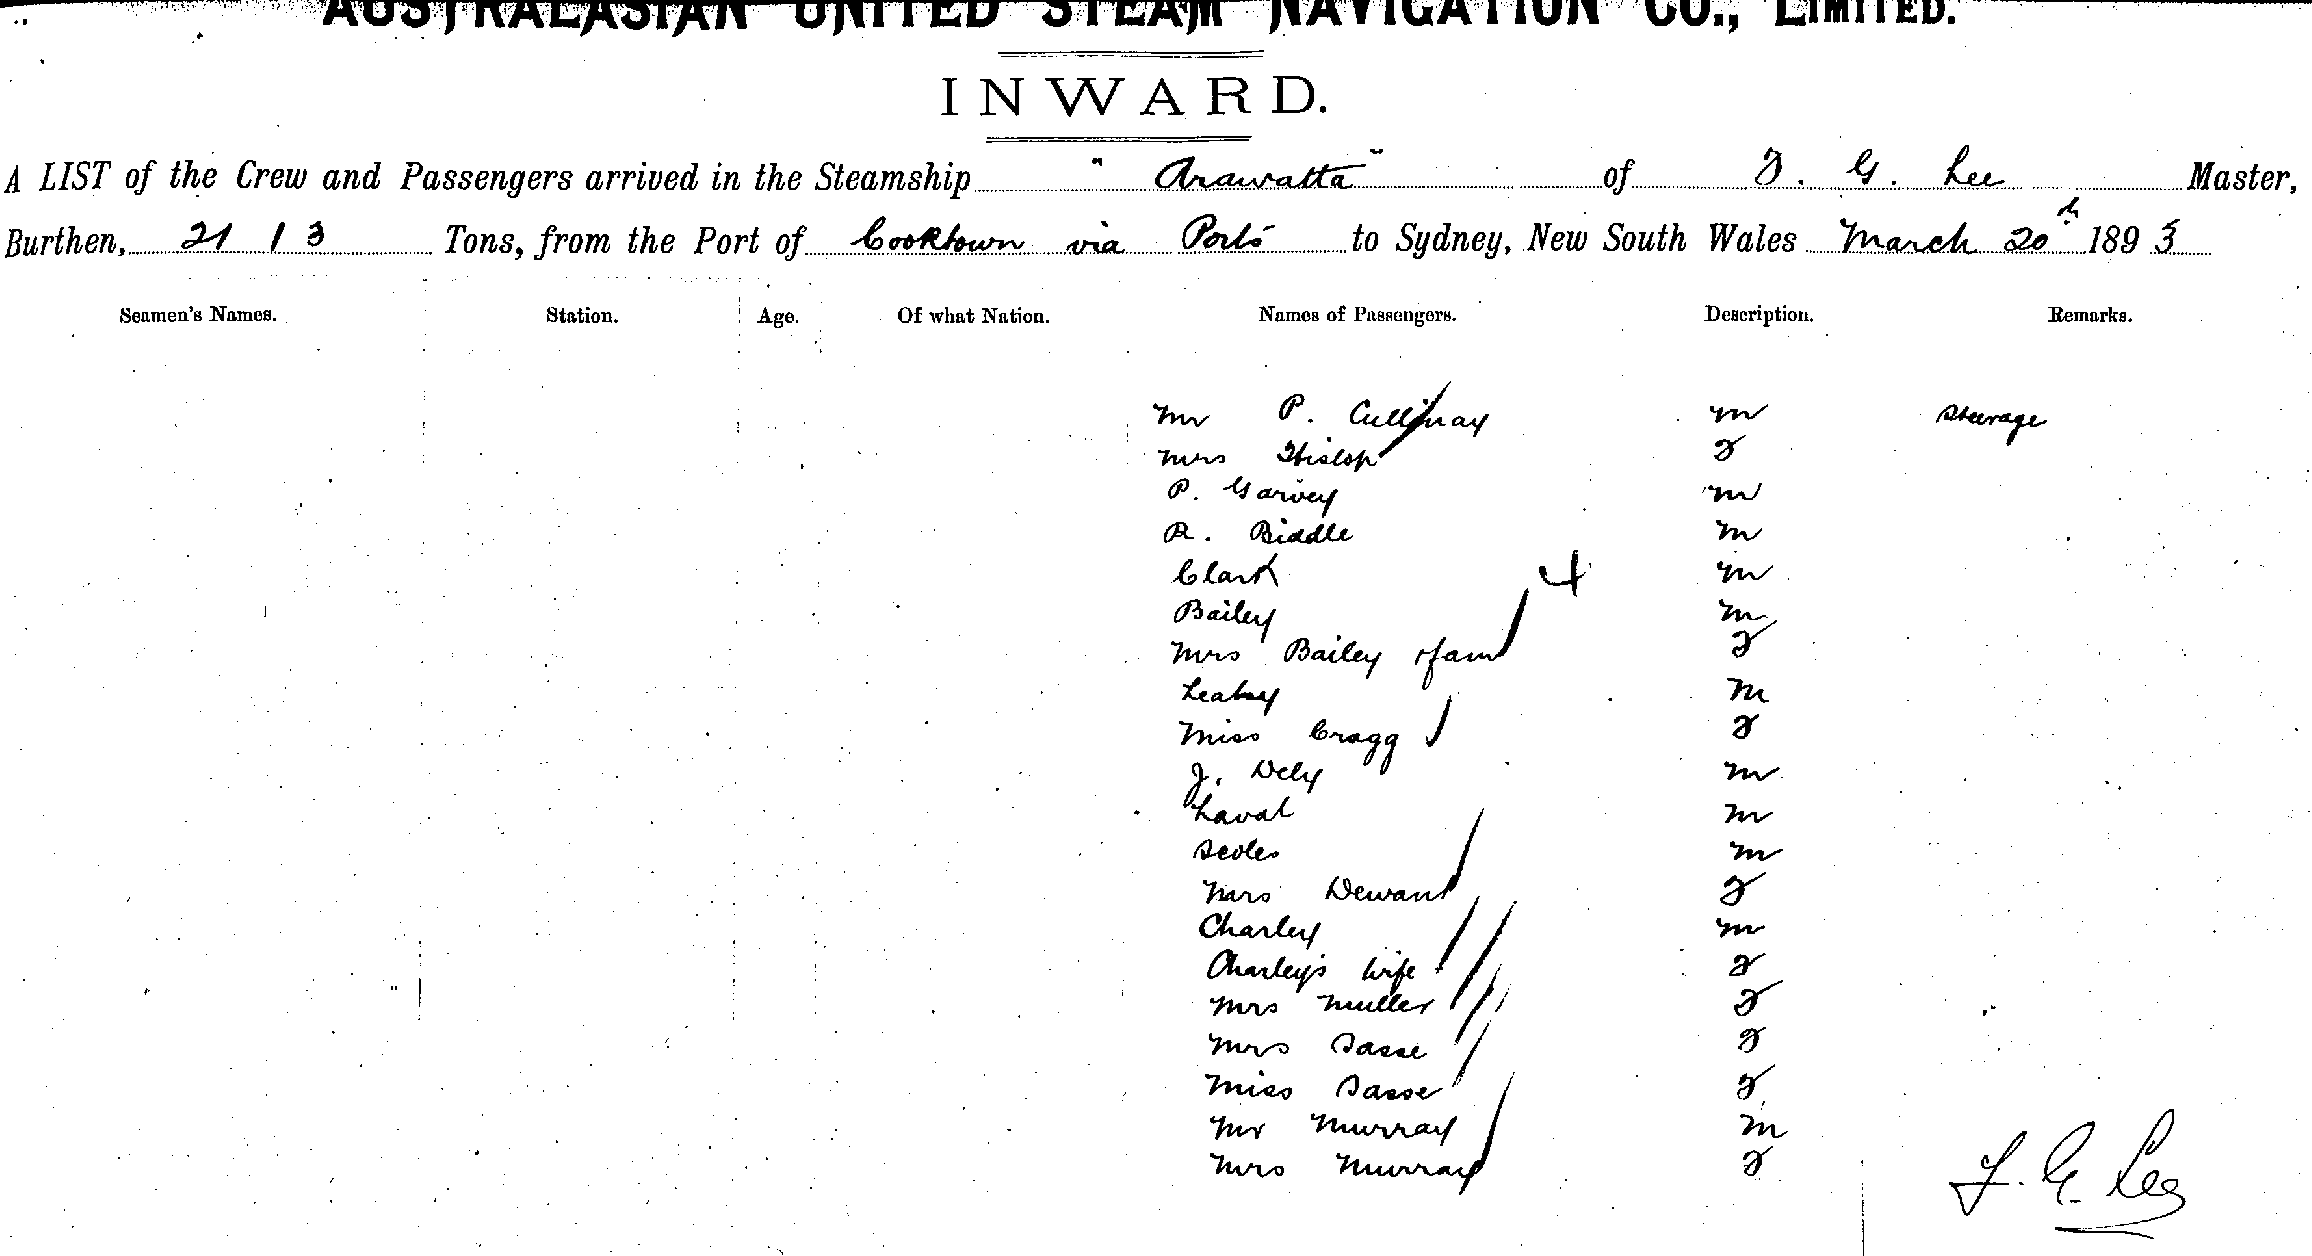 AUSTRALASIAN UNITED STEAM NAVIGATION CO., LIMITED.
INWARD.
A LIST of the Crew and Passengers arrived in the Steamship "Arawatta" of F. G. Lee Master,
Burthen, 2113 Tons, from the Port of Cooktown via Ports to Sydney, New South Wales March 20th 1893
Seamen's Names. Station. Age. Of what Nation. Names of Passengers. Description. Remarks.
Mr P. Cullinay m Steerage
Mrs Hislop F
P. Garvey m
R. Biddle m
Clark 4 m
Bailey m
Mrs Bailey & fam F
Leahy m
Miss Cragg F
J. Dely m
Laval m
Scoles m
Mrs Dewant F
Charley m
Charley's wife F
Mrs Muller F
Mrs Sasse F
Miss Sasse F
Mr Murray m
Mrs Murray F
F. G. Lee